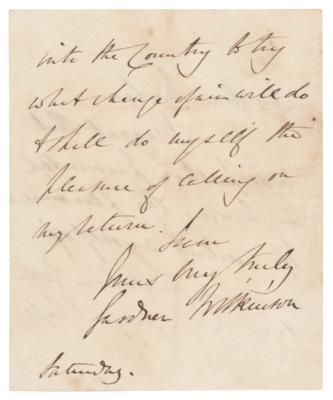 into the Country to try
what change of air will do
& shall do myself the
pleasure of calling on
my return. I am
Yours very truly
Gardner Wilkinson
Saturday.